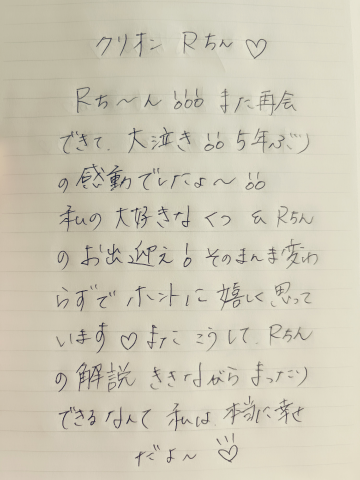 クリオン Rちん♡
Rち〜ん!!! また再会
できて、大泣き!! 5年ぶり
の感動でしたょ〜!!
私の大好きな くつ & Rちん
のお出迎え! そのまんま変わ
らずで ホントに嬉しく思って
います♡ またこうして、Rちん
の解説 ききながら まったり
できるなんて 私は、本当に幸せ
だよ〜♡